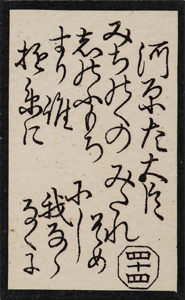 河原左大臣
みちのくの
志のふもち
すり誰
に
みたれ
そめ
にし
我なら
なくに
四十四